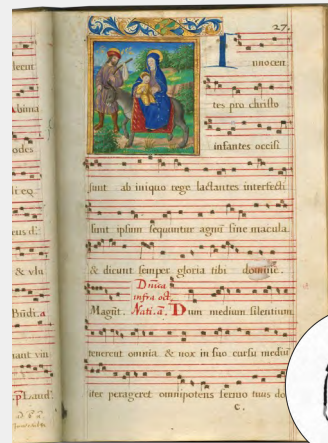 27.
Innocen
tes pro christo
infantes occisi
sunt ab iniquo rege lactantes interfecti
sunt ipsum sequuntur agnū sine macula.
& dicunt semper gloria tibi domine.
Dn̄ica
infra oct.
Magn̄t. Nati. ā. Dum medium silentium
tenerent omnia & nox in suo cursu mediū
iter perageret omnipotens sermo tuus do
C.
lecu
bima
odes
li eq
eus d:
& vlu
Būdi: a
naut vin